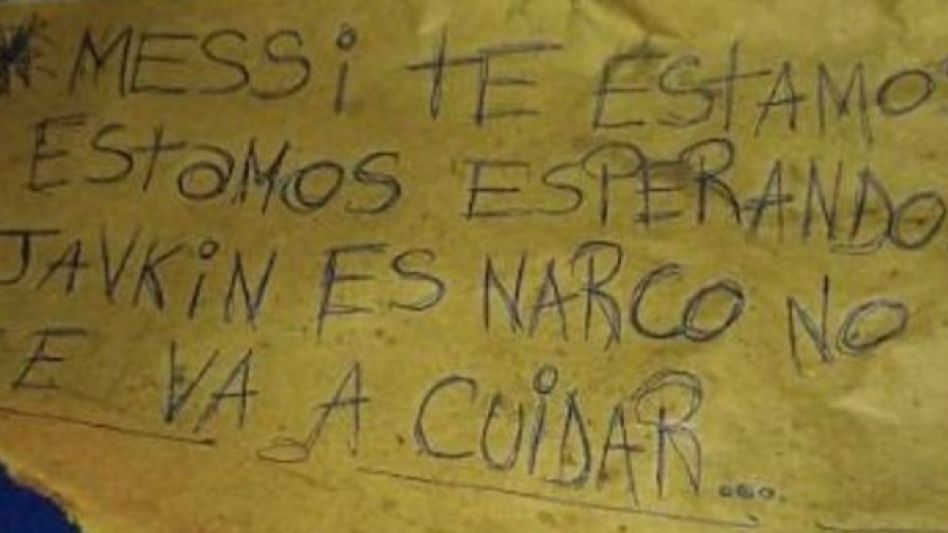 *MESSi TE ESTAMOS
ESTaMOS ESPERANDO
JAVKiN ES NARCO NO
E VA A CUiDAR...